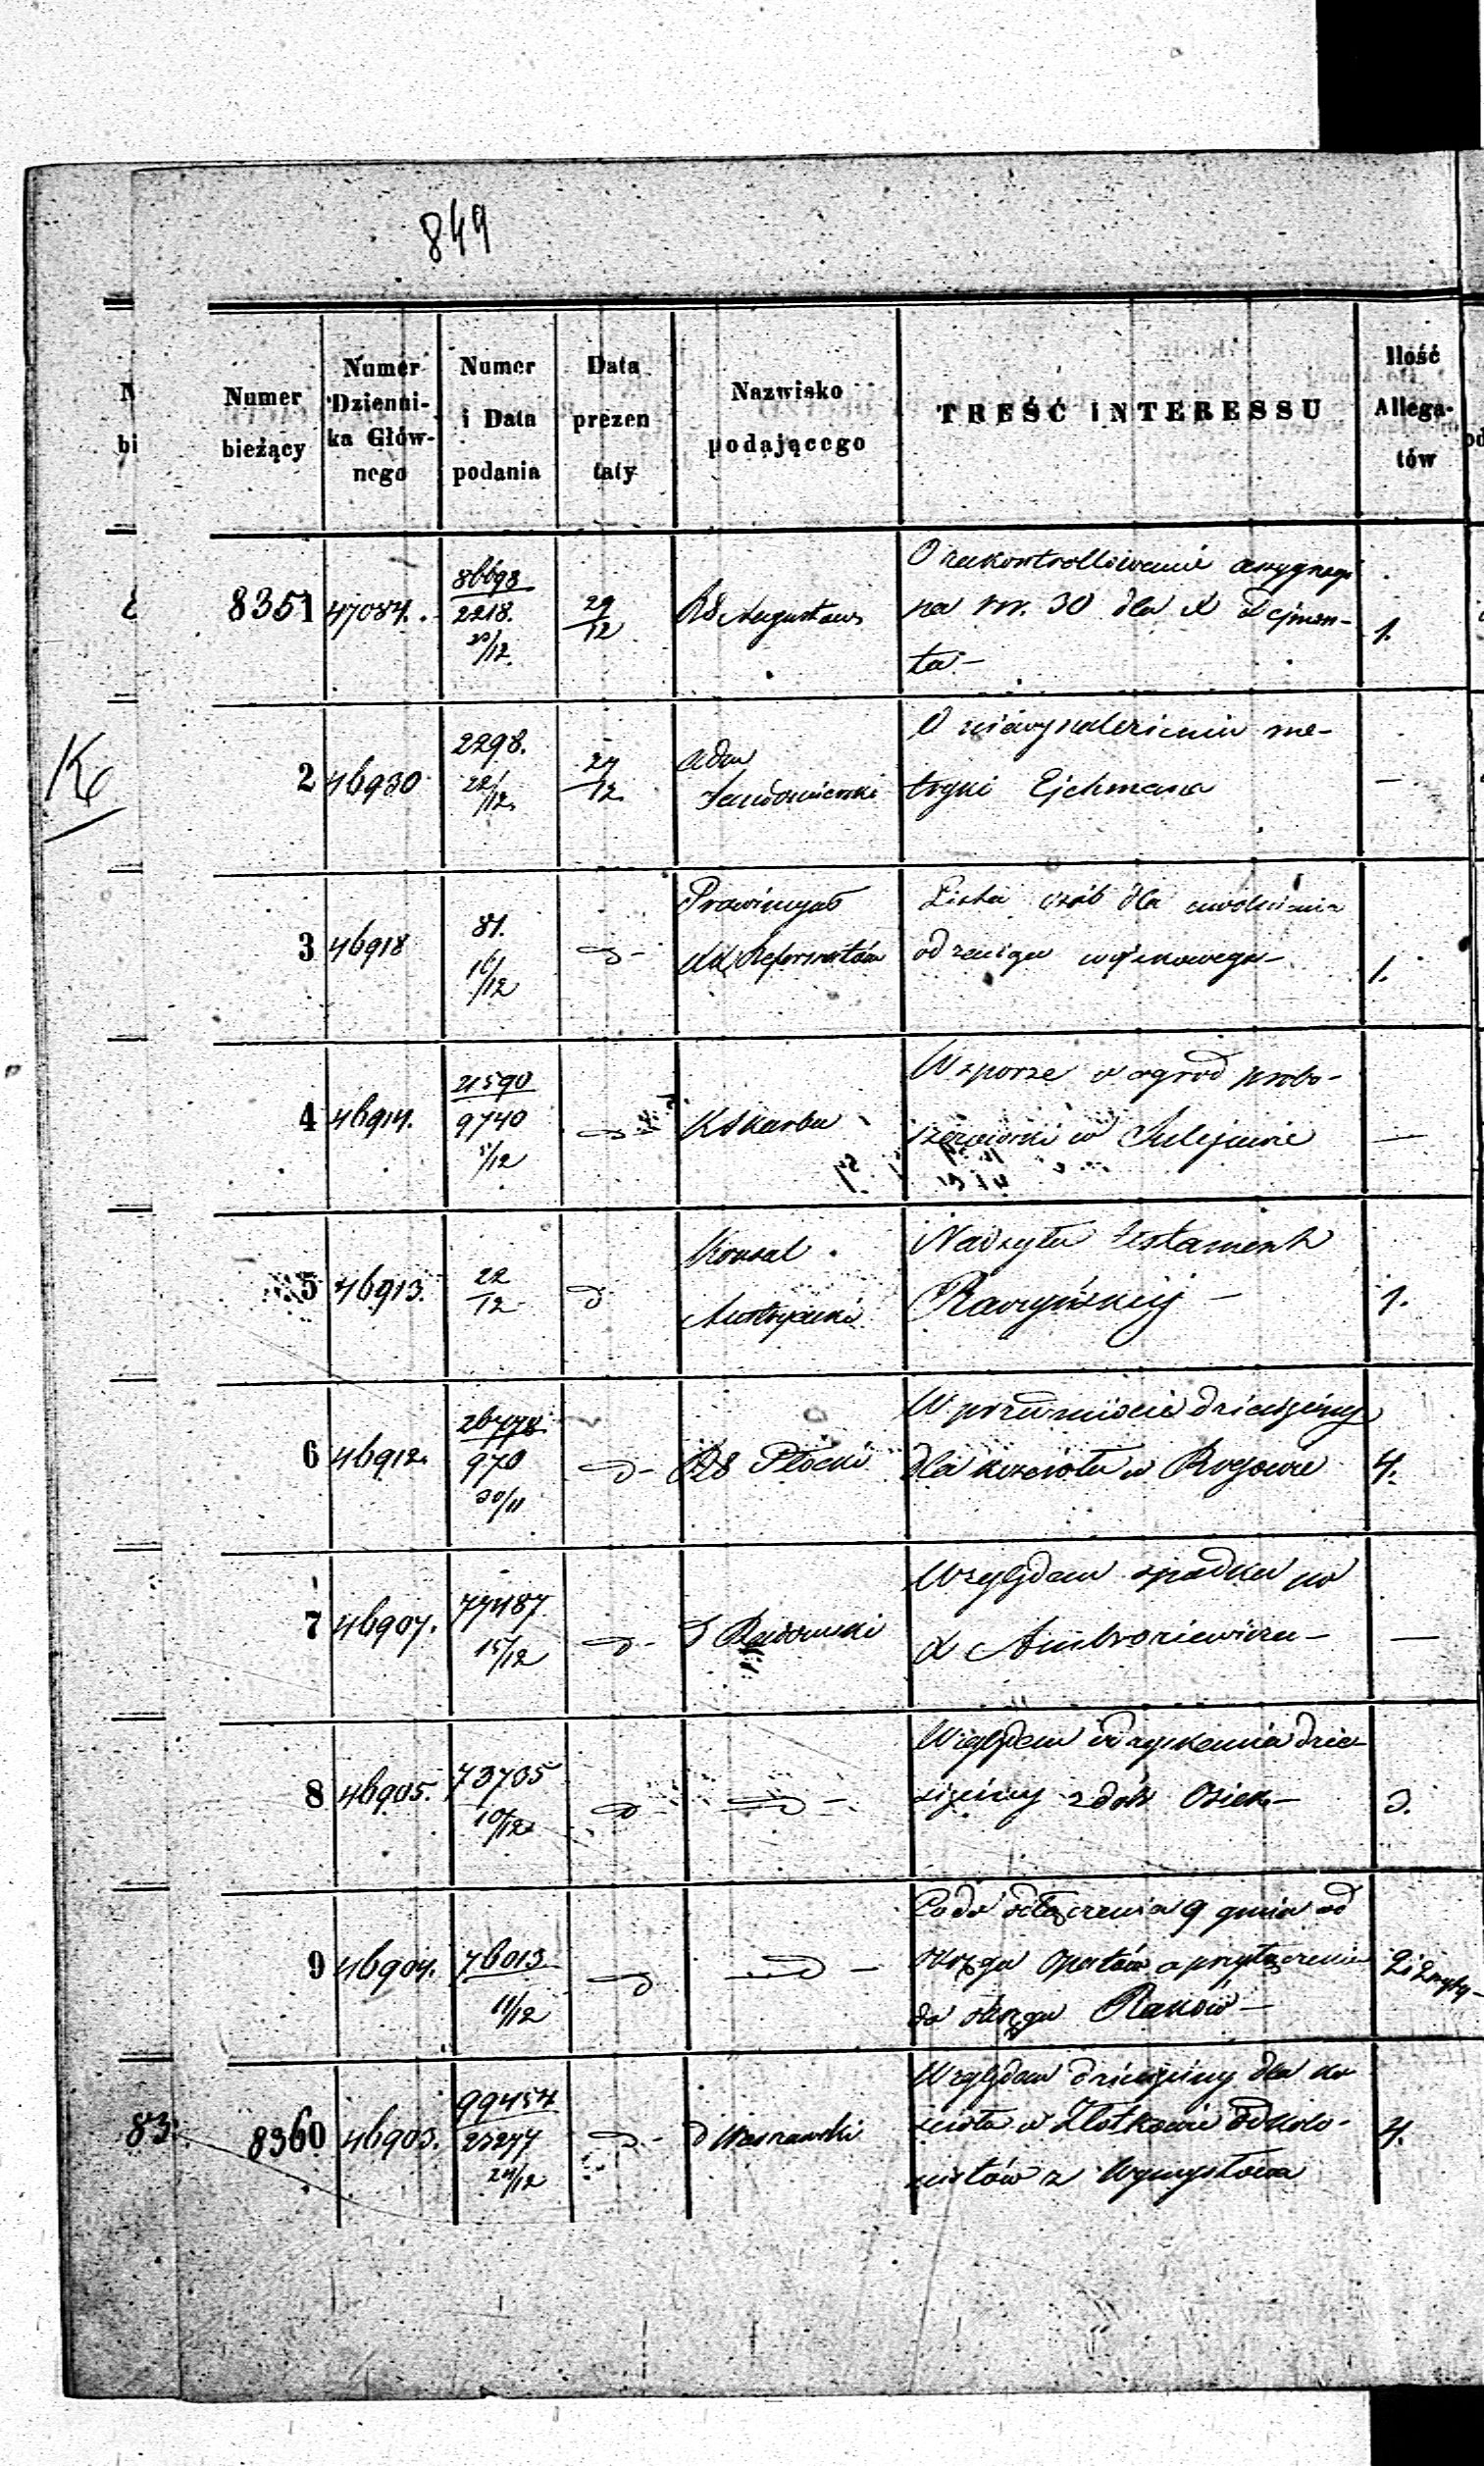 849
Numer bieżący
Numer Dzienni-ka Głów-nego
Numer i Data podania
Data prezen taty
Nazwisko podającego
TREŚĆ INTERESSU
Ilość Allega-tów
8351 47084. 86698 2218. 20/12 29/12 RS Augustows O zakontrollowanie assygnacyi
na rsr. 30 dla X Dejmen- 1.
ta –
K
2 46930 2298. 22/12. 27/12 Adm Sandomierski O niewynalezieniu me-
tryki Ejchmana —
3 46918 81. 16/12 d- Prowincyał XX Reformatów Lista osób dla uwolnienia
od zaciągu wojskowego – 1.
4 46914. 21590 9740 5/12 d K Skarbu W sporze o ogród probo-
szczowski w Sulejowie —
5 46913. 22/12 d Konsul Austryacki Nadsyła testament
Raczyńskiej – 1.
6 46912. 26778 970 30/11 d- RS Płocki W przedmiocie dziesięciny
dla kościoła w Rogowie 4.
7 46907. 77487 15/12 d- d Radomski Względem spadku po
X Ambroziewiczu – —
8 46905. 73705 10/12 d d – Względem odzyskania dzie-
sięciny z dóbr Osiek – 3.
9 46904. 76013 11/12 d d – Co do odłączenia 9 gmin od
okręgu Opatów a przyłączenia
do okręgu Raków –
83
8360 46903. 99454 23277 24/12 d- d Warszawski Względem dziesięciny dla ko
ścioła w Złotkowie od kolo- 4.
nistów z Wymysłowa